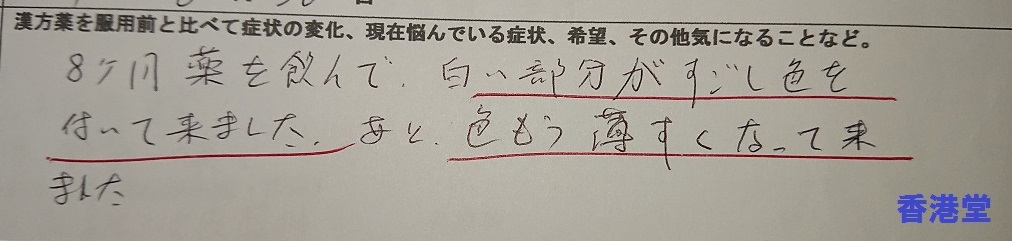 漢方薬を服用前と比べて症状の変化、現在悩んでいる症状、希望、その他気になることなど。
8ヶ月薬を飲んで、白い部分がすごし色を
付いて来ました、あと、色もう薄すくなって来
ました
香港堂